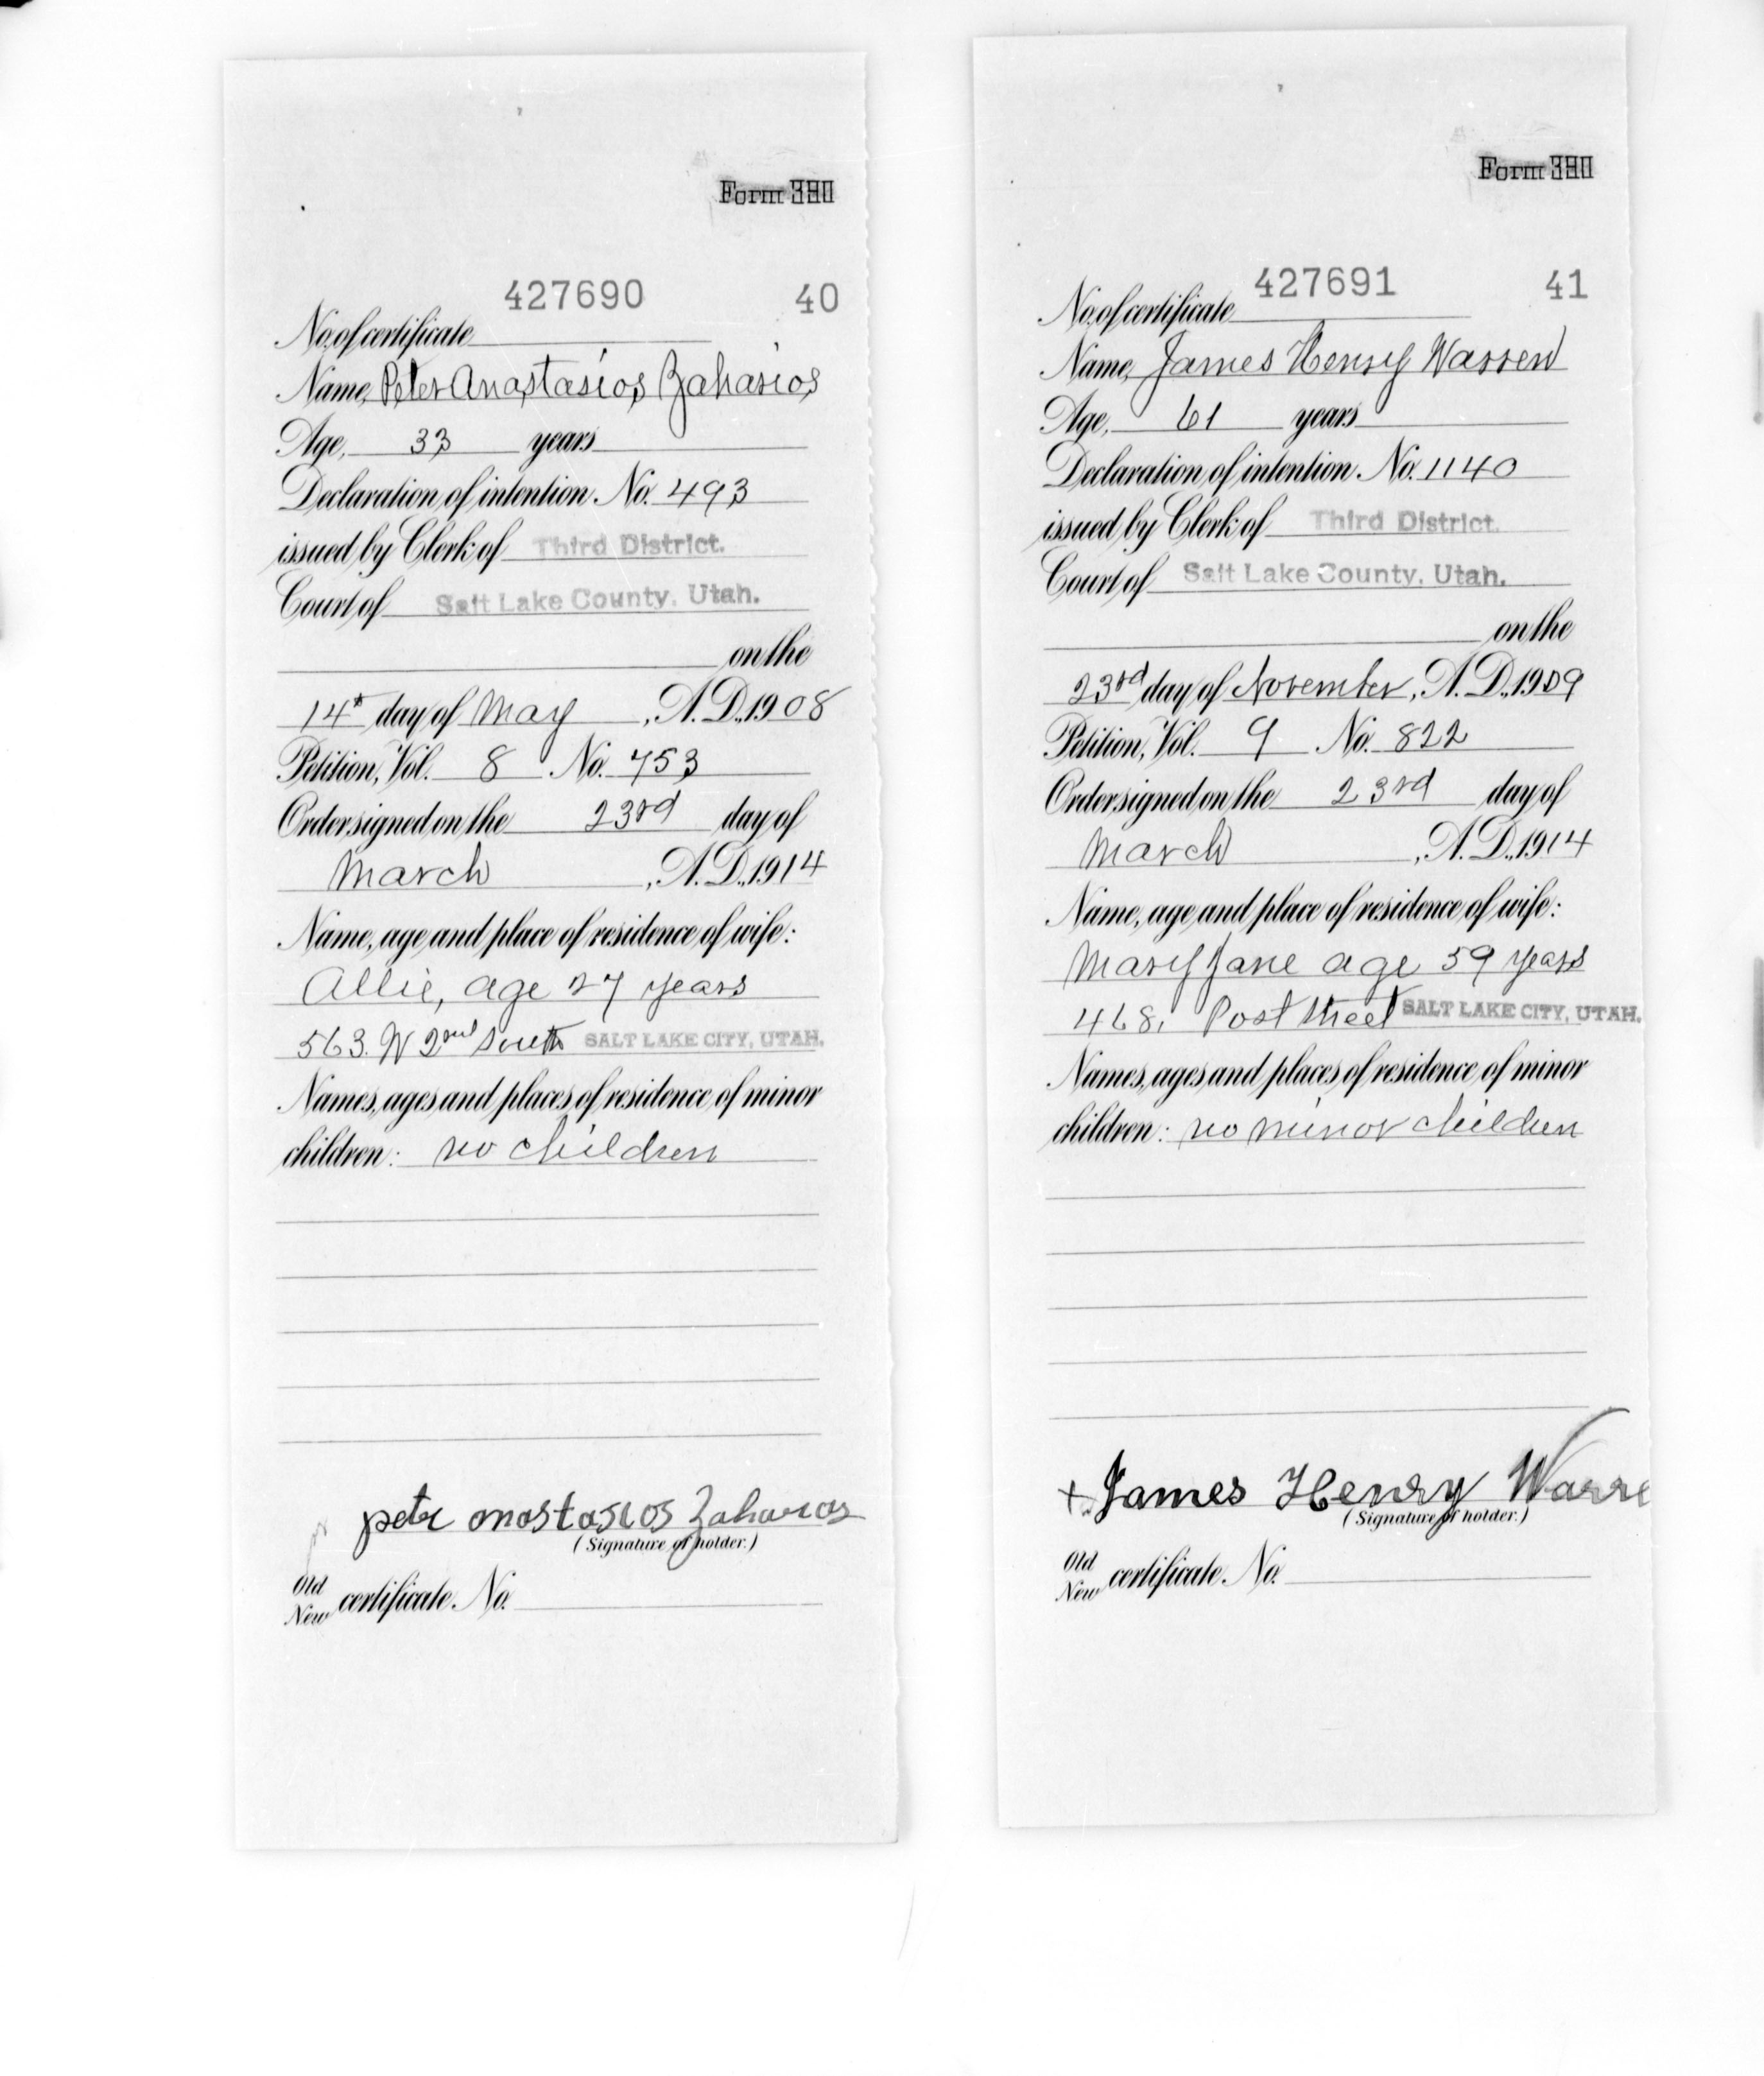 Form 380
427690 40
No. of certificate
Name, Peter Anastasios Zaharios
Age, 33 years
Declaration of intention No. 493
issued by Clerk of Third District.
Court of Salt Lake County, Utah.
on the
14th day of May, A.D. 1908
Petition, Vol. 8 No. 753
Order signed on the 23rd day of
March, A.D. 1914
Name, age and place of residence of wife:
Allie, age 27 years
563. W 2nd South SALT LAKE CITY, UTAH.
Names, ages and places of residence of minor
children: no children
petr anastasios Zaharios
(Signature of holder.)
Old
New certificate No.
Form 380
427691 41
No. of certificate
Name, James Henry Warren
Age, 61 years
Declaration of intention No. 1140
issued by Clerk of Third District.
Court of Salt Lake County, Utah.
on the
23rd day of November, A.D. 1909
Petition, Vol. 9 No. 822
Order signed on the 23rd day of
March, A.D. 1914
Name, age and place of residence of wife:
Mary Jane age 59 years
468, Post Street SALT LAKE CITY, UTAH.
Names, ages and places of residence of minor
children: no minor children
+ James Henry Warre
(Signature of holder.)
Old
New certificate No.